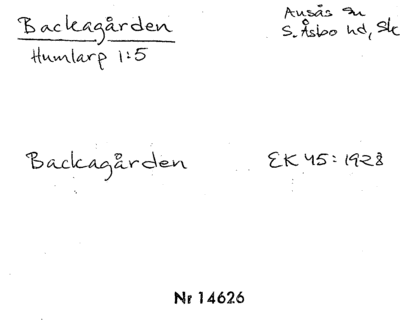 Backagården
Humlarp 1:5
Ausås sn
S. Åsbo hd, Sk
Backagården
EK 45: 1928
Nr 14626